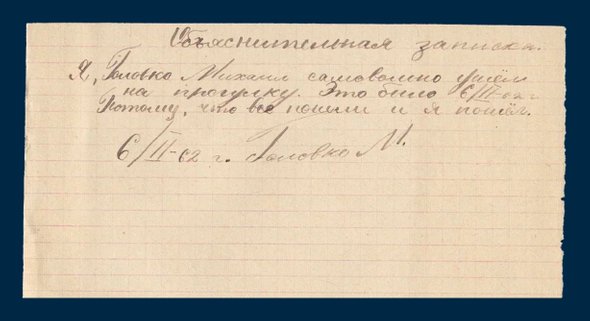 Объяснительная записка.
Я, Головко Михаил самовольно ушёл
на прогулку. Это было 6/II-62 г.
Потому, что все пошли и я пошёл.
6/II-62 г. Головко М.